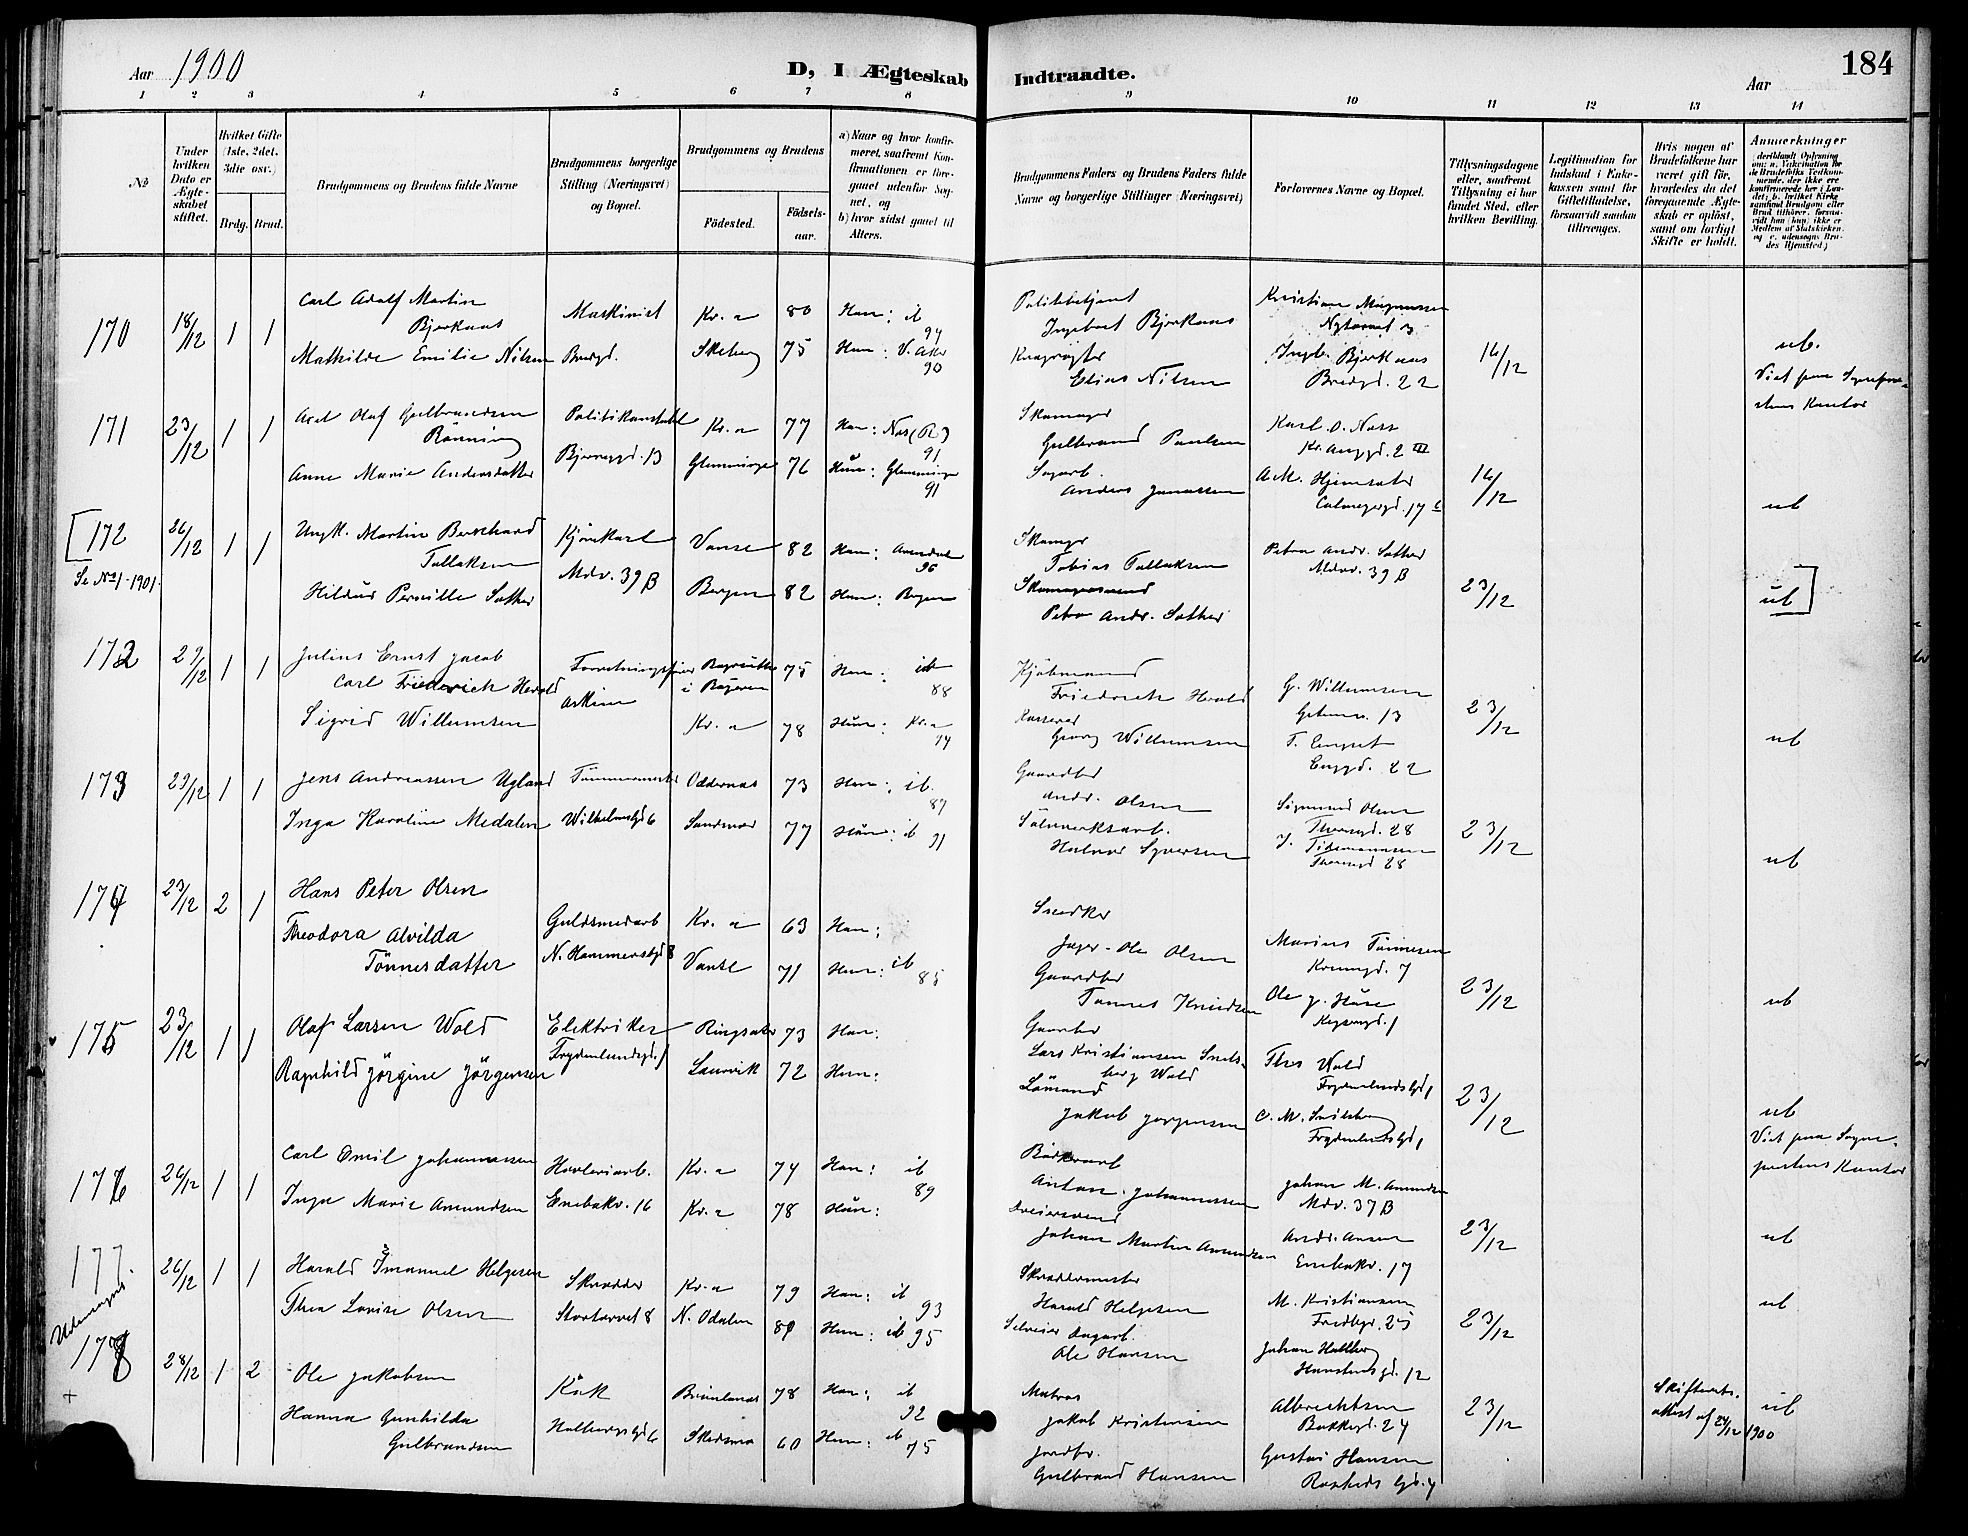 Aar 1900
D, I Ægteskab Indtraadte.
Aar
184
1 2 3 4 5 6 7 8 9 10 11 12 13 14
No
Under hvilken Dato er Ægteskabet stiftet.
Hvilket Gifte (1ste, 2det, 3die osv.)
Brdg. Brud.
Brudgommens og Brudens fulde Navne
Brudgommens borgerlige Stilling (Næringsvei) og Bopæl.
Brudgommens og Brudens
Fødested. Fødselsaar.
a) Naar og hvor konfirmeret, saafremt Konfirmationen er foregaaet udenfor Sognet, og
b) hvor sidst gaaet til Alters.
Brudgommens Faders og Brudens Faders fulde Navne og borgerlige Stillinger (Næringsvei)
Forlovernes Navne og Bopæl.
Tillysningsdagene eller, saafremt Tillysning ei har fundet Sted, efter hvilken Bevilling.
Legitimation for Indskud i Enkekassen samt for Giftetilladelse, forsaavidt saadan tiltrænges.
Hvis nogen af Brudefolkene har været gift før, hvorledes da det foregaaende Ægteskab er opløst, samt om lovligt Skifte er holdt.
Anmærkninger
170 18/12 1 1
Carl Adolf Martin
Bjerkaas
Maskinist Kr.a 80 Han: ib 94
Mathilde Emilie Nilsen Bredgd. Skeberg 75 Hun: V. Aker 90
Politibetjent
Ingebret Bjerkaas
Elias Nilsen
Kristian Magnussen
Nytorvet 3
Ingb. Bjerkaas
Bredgd. 22
16/12
ub.
Viet paa Sognepre-
stens Kontor
171 23/12 1 1
Axel Olaf Gulbrandsen
Rönning
Politikonstabel Kr.a 77 Han: Nes (R) 91
Anne Marie Andersdatter Bjerregd. 13 Glemminge 76 Hun: Glemminge 91
Skomager
Gulbrand Paulsen
Sagarb.
Anders Jonassen
Karl O. Næss
Kr. Auggd. 2 III
A.M. Hjemsæter
Calmeyergd. 17 c
16/12
ub
[172 26/12 1 1
Se No 1 - 1901.
Ungk. Martin Bernhard
Tollaksen
Kjörekarl Vanse 82 Han: Arendal 96
Hildur Pernille Sother Mdv. 39 B Bergen 82 Hun: Bergen
Skomager
Tobias Tollaksen
Skomagersvend
Peter Andr. Sother
Peter Andr. Sother
Mdv. 39 B
23/12
ub]
172 27/12 1 1
Julius Ernst Jacob
Carl Friederich Herold
Forretningsfører Bayreuth i Bayern 75 Han: ib 88
Sigrid Willumsen Askim Kr.a 78 Hun: Kr.a 94
Kjöbmand
Friedrich Herold
Kasserer
Georg Willumsen
G. Willumsen
13
T. Engset
Enggd. 22
23/12
ub
173 29/12 1 1
Jens Andreassen Ugland Tömmermester Oddernes 73 Han: ib. 87
Inga Karoline Medalen Wilhelmsgd 6 Sandsvær 77 Hun: ib 91
Gaardbr
Andr. Olsen
Sölvverksarb.
Halvor Syversen
Sigmund Olsen
Thorsgd. 28
J. Tidemannsen
Thorsgd 28
23/12
ub
174 23/12 2 1
Hans Peter Olsen
Guldsmedarb Kr.a 63 Han:
Theodora Alvilda
Tönnesdatter
N. Hammersbgd 8 Vanse 71 Hun: ib 85
Snedker
Jager-Ole Olsen
Gaardbr
Tönnes Knudsen
Marius Tönnesen
Kroesgd. 7
Ole J. Huse
Keysersgd. 1
23/12
ub
175 23/12 1 1
Olaf Larsen Wold Elektriker Ringsaker 73 Han:
Ragnhild Jörgine Jörgensen Frydenlundsgd. 1 Laurvik 72 Hun:
Gaardbr
Lars Kristiansen Snels-
berg Wold
Jakob Jorgensen
Thos Wold
Frydenlundsgd 1
C. M.
Frydenlundsgd 1
23/12
ub
Viet paa Sogne-
prestens Kontor
176 26/12 1 1
Carl Emil Johannessen Høvleriarb. Kr.a 74 Han: ib 89
Inga Marie Amundsen Enebakv. 16 Kr.a 78 Hun:
Anton Johannessen
Dreiersvend
Johan Martin Amundsen
Johan M. Amundsen
Mdv. 37 B
Andr. Ansen
Enebakv. 17
23/12
ub
177. 26/12 1 1
Harald Imanuel Helgesen Skrædder Kr.a 79 Han: ib 93
Thea Lovise Olsen Stortorvet 8 N. Odalen 80 Hun: ib 95
Skræddermester
Harald Helgesen
Selveier Dagarb.
Ole Hansen
M. Kristiansen
Fredbgr. 25
Johan Hallberg
Hansteensgd. 12
23/12
ub
Udensogns
178 28/12 1 2
+
Ole Jakobsen Kok Brunlanes 78 Han: ib 92
Hanna Gunhilda
Gulbrandsen
Holbergsgd 6 Skedsmo 60 Hun: ib 75
Matros
Jakob Kristensen
Jordbr.
Gulbrand Hansen
Albrechtsen
Bakkegd. 24
Gustav Hansen
23/12
Skifterets-
attest af 24/12 1900
ub